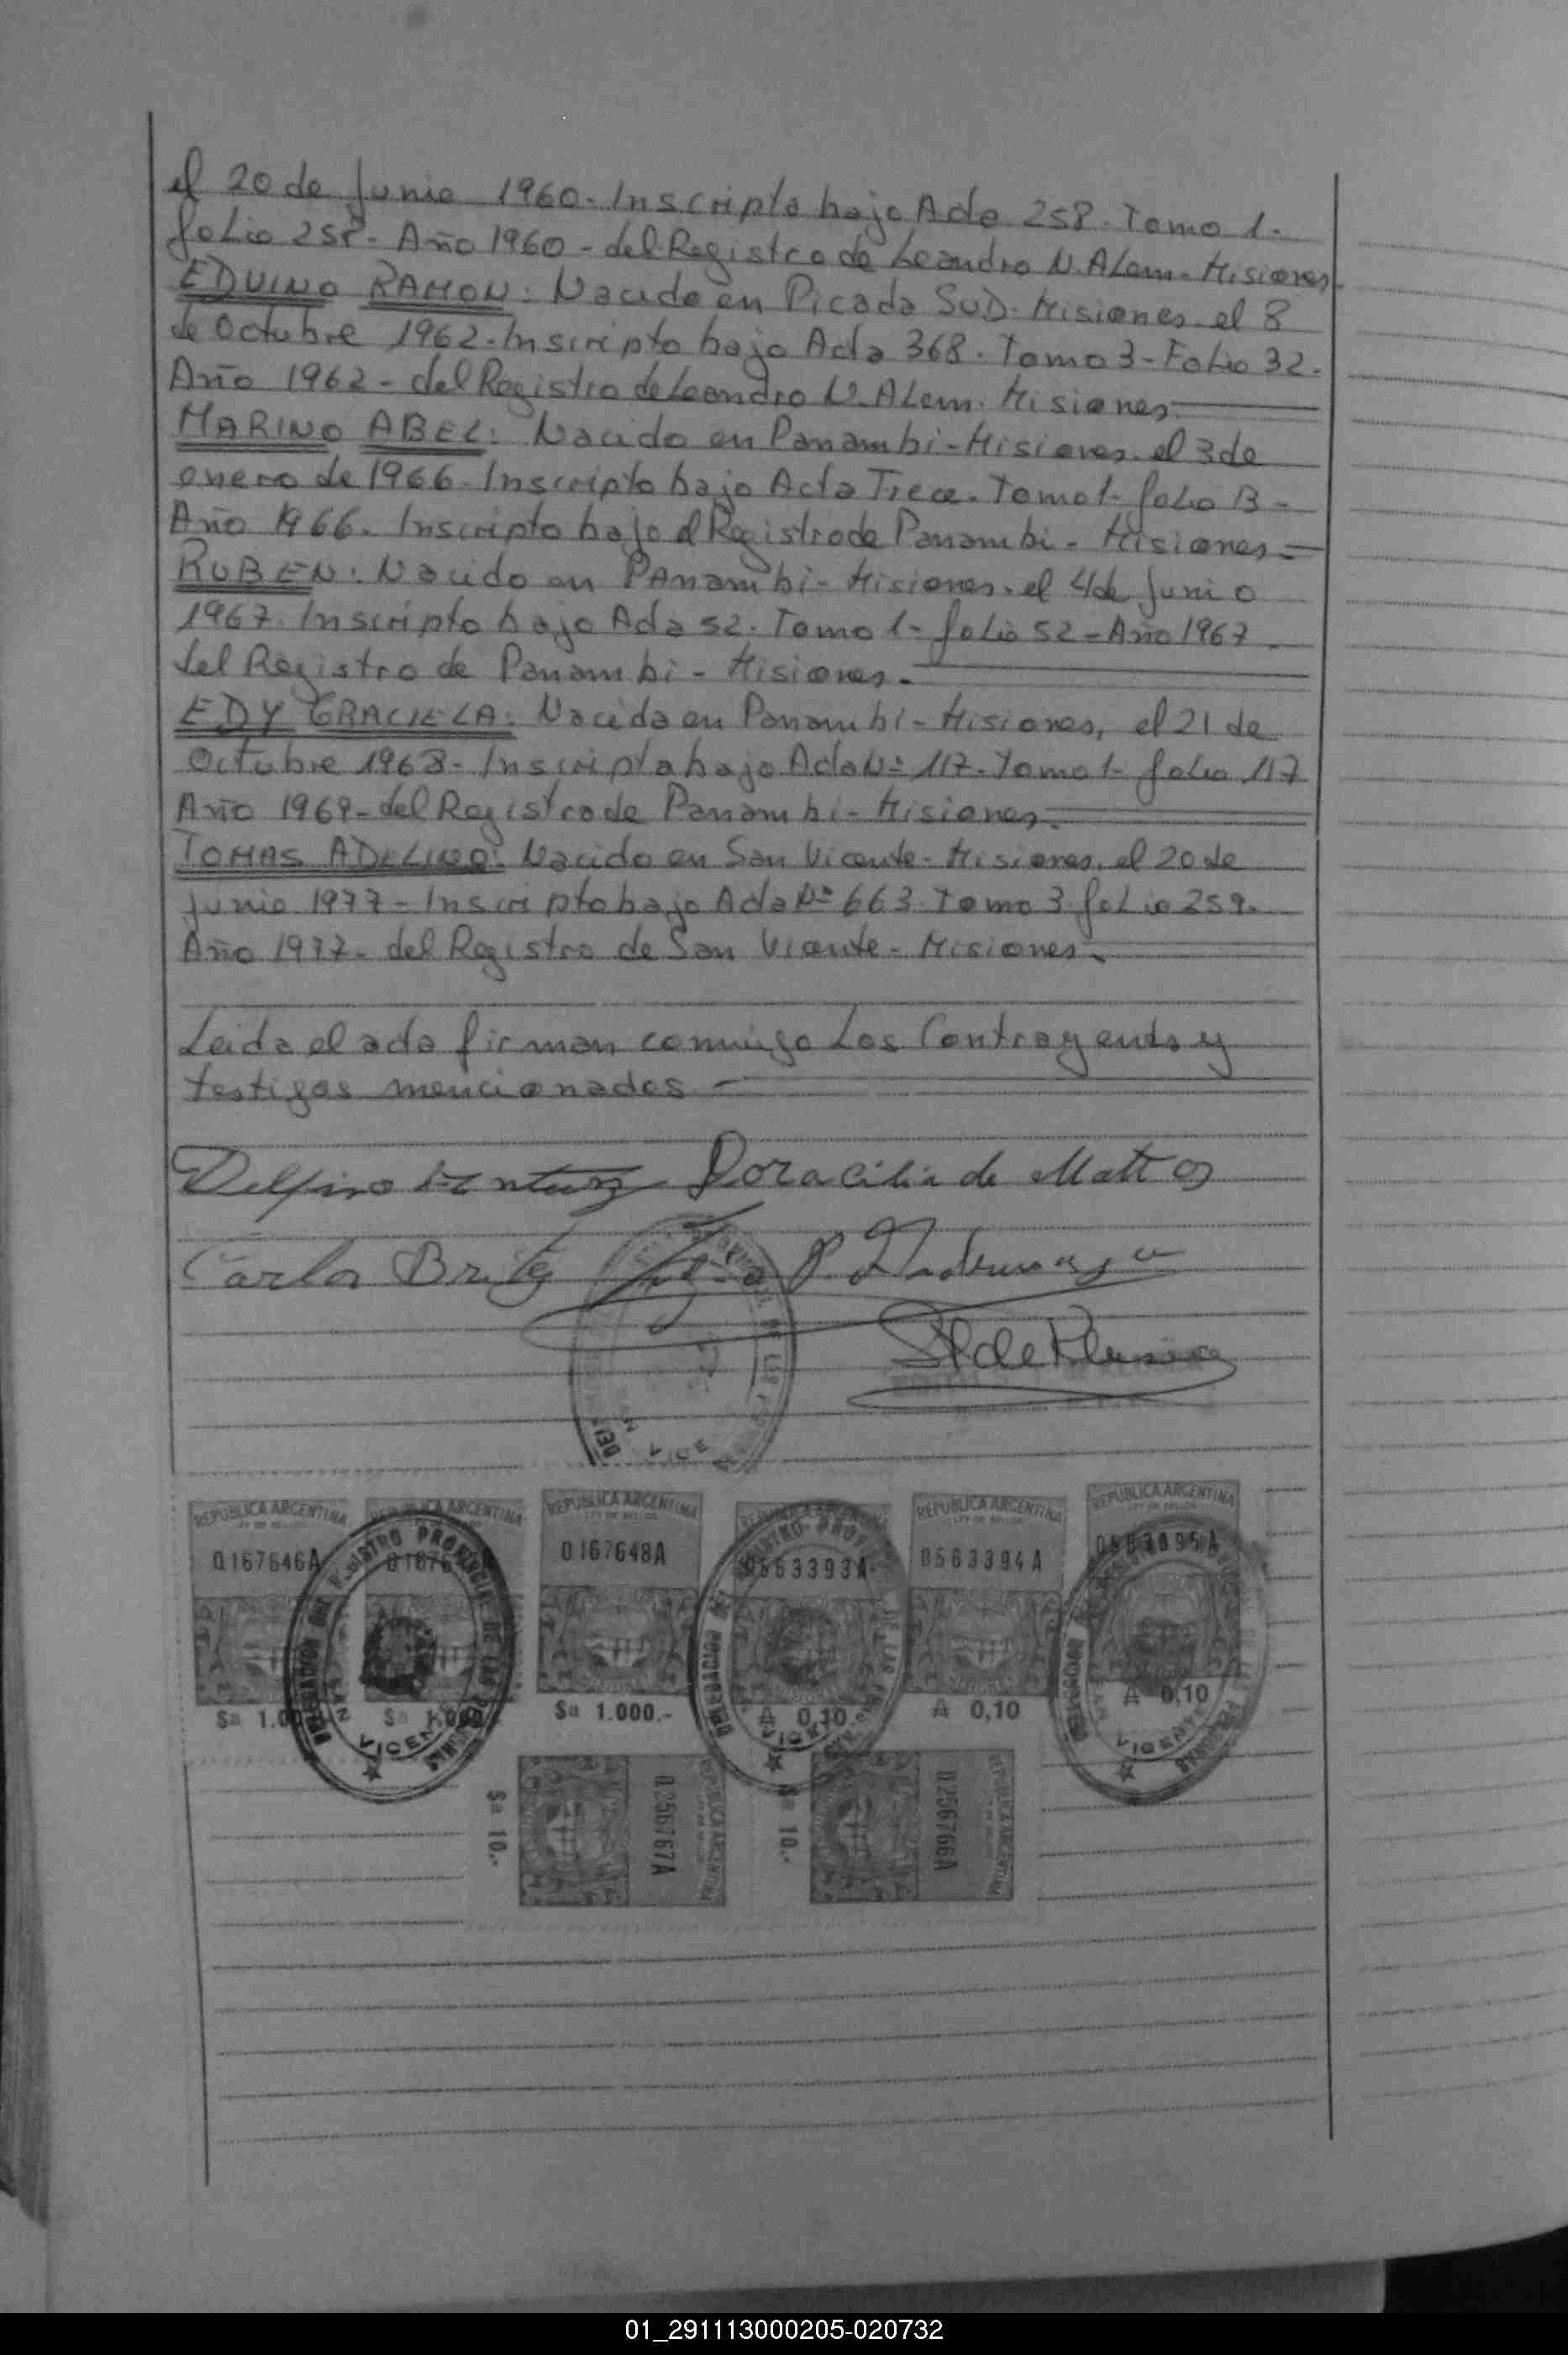 el 20 de Junio 1960. Inscripto bajo Acta 258. Tomo 1.
folio 258. Año 1960 - del Registro de Leandro N. Alem - Misiones
EDUINO RAMON: Nacido en Picada SUD. Misiones. el 8
de Octubre 1962. Inscripto bajo Acta 368. Tomo 3 - Folio 32.
Año 1962 - del Registro de Leandro N. Alem. Misiones
MARINO ABEL: Nacido en Panambi - Misiones. el 3 de
enero de 1966. Inscripto bajo Acta Trece. Tomo 1. folio 13 -
Año 1966. Inscripto bajo el Registro de Panambi - Misiones
RUBEN: Nacido en PAnambi - Misiones. el 4 de Junio
1967. Inscripto bajo Acta 52. Tomo 1 - folio 52 - Año 1967
del Registro de Panambi - Misiones.
EDY GRACIELA: Nacida en Panambi - Misiones, el 21 de
Octubre 1968. Inscripta bajo Acta Nº 117. Tomo 1. folio 117
Año 1969 - del Registro de Panambi - Misiones.
TOMAS ADELINO: Nacido en San Vicente - Misiones. el 20 de
Junio 1977 - Inscripto bajo Acta Nº 663. Tomo 3. folio 259.
Año 1977. del Registro de San Vicente - Misiones.
Leida el acta firman conmigo Los Contrayentes y
testigos mencionados.
Delfino Doracilia de Mattos
Carlos Britez P.
REPUBLICA ARGENTINA REPUBLICA ARGENTINA REPUBLICA ARGENTINA REPUBLICA ARGENTINA REPUBLICA ARGENTINA
LEY DE SELLOS
0167646A 0167648A 0563393A 0563394A 0563395A
$a 1.000.- ₳ 0,10 ₳ 0,10 ₳ 0,10
VICENTE
$a 10.- 0256767A REPUBLICA ARGENTINA
$a 10.- 0256766A REPUBLICA ARGENTINA
01_291113000205-020732